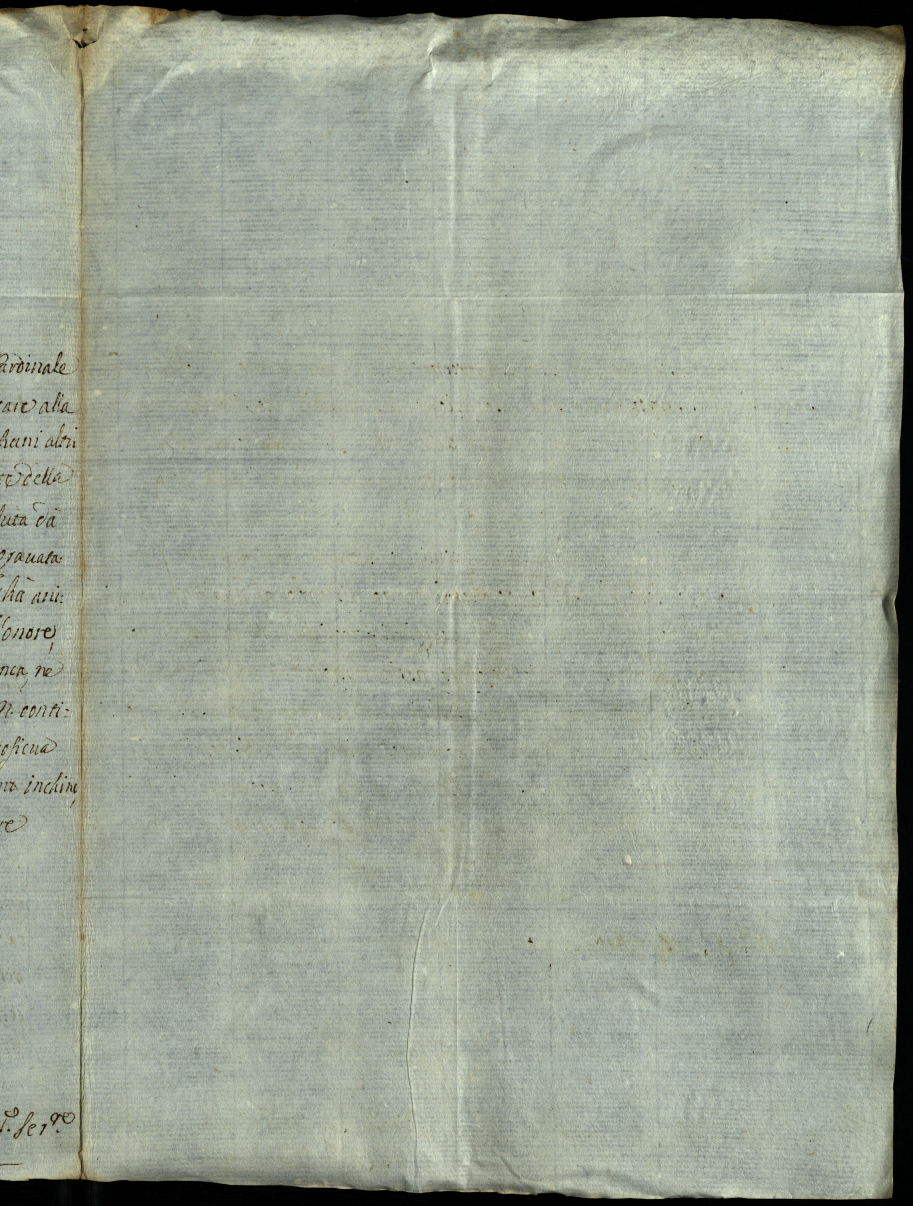 ardinale
care alla
altri
della
luta dà
gravata
ani:
l'onore,
nca, ne
conti:
oficua
inchino
re
ser.re